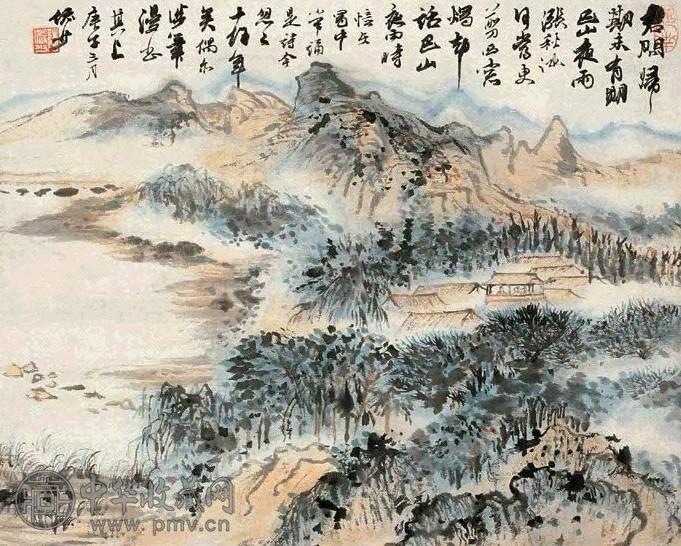 君問歸
期未有期
巴山夜雨
漲秋池
何當更
剪西窗
燭却
話巴山
夜雨時
蜀中
常誦
是詩今
忽之
十餘年
矣偶尔
筆
漫書
其上
庚午三月
中华收藏网
www.pmv.cn